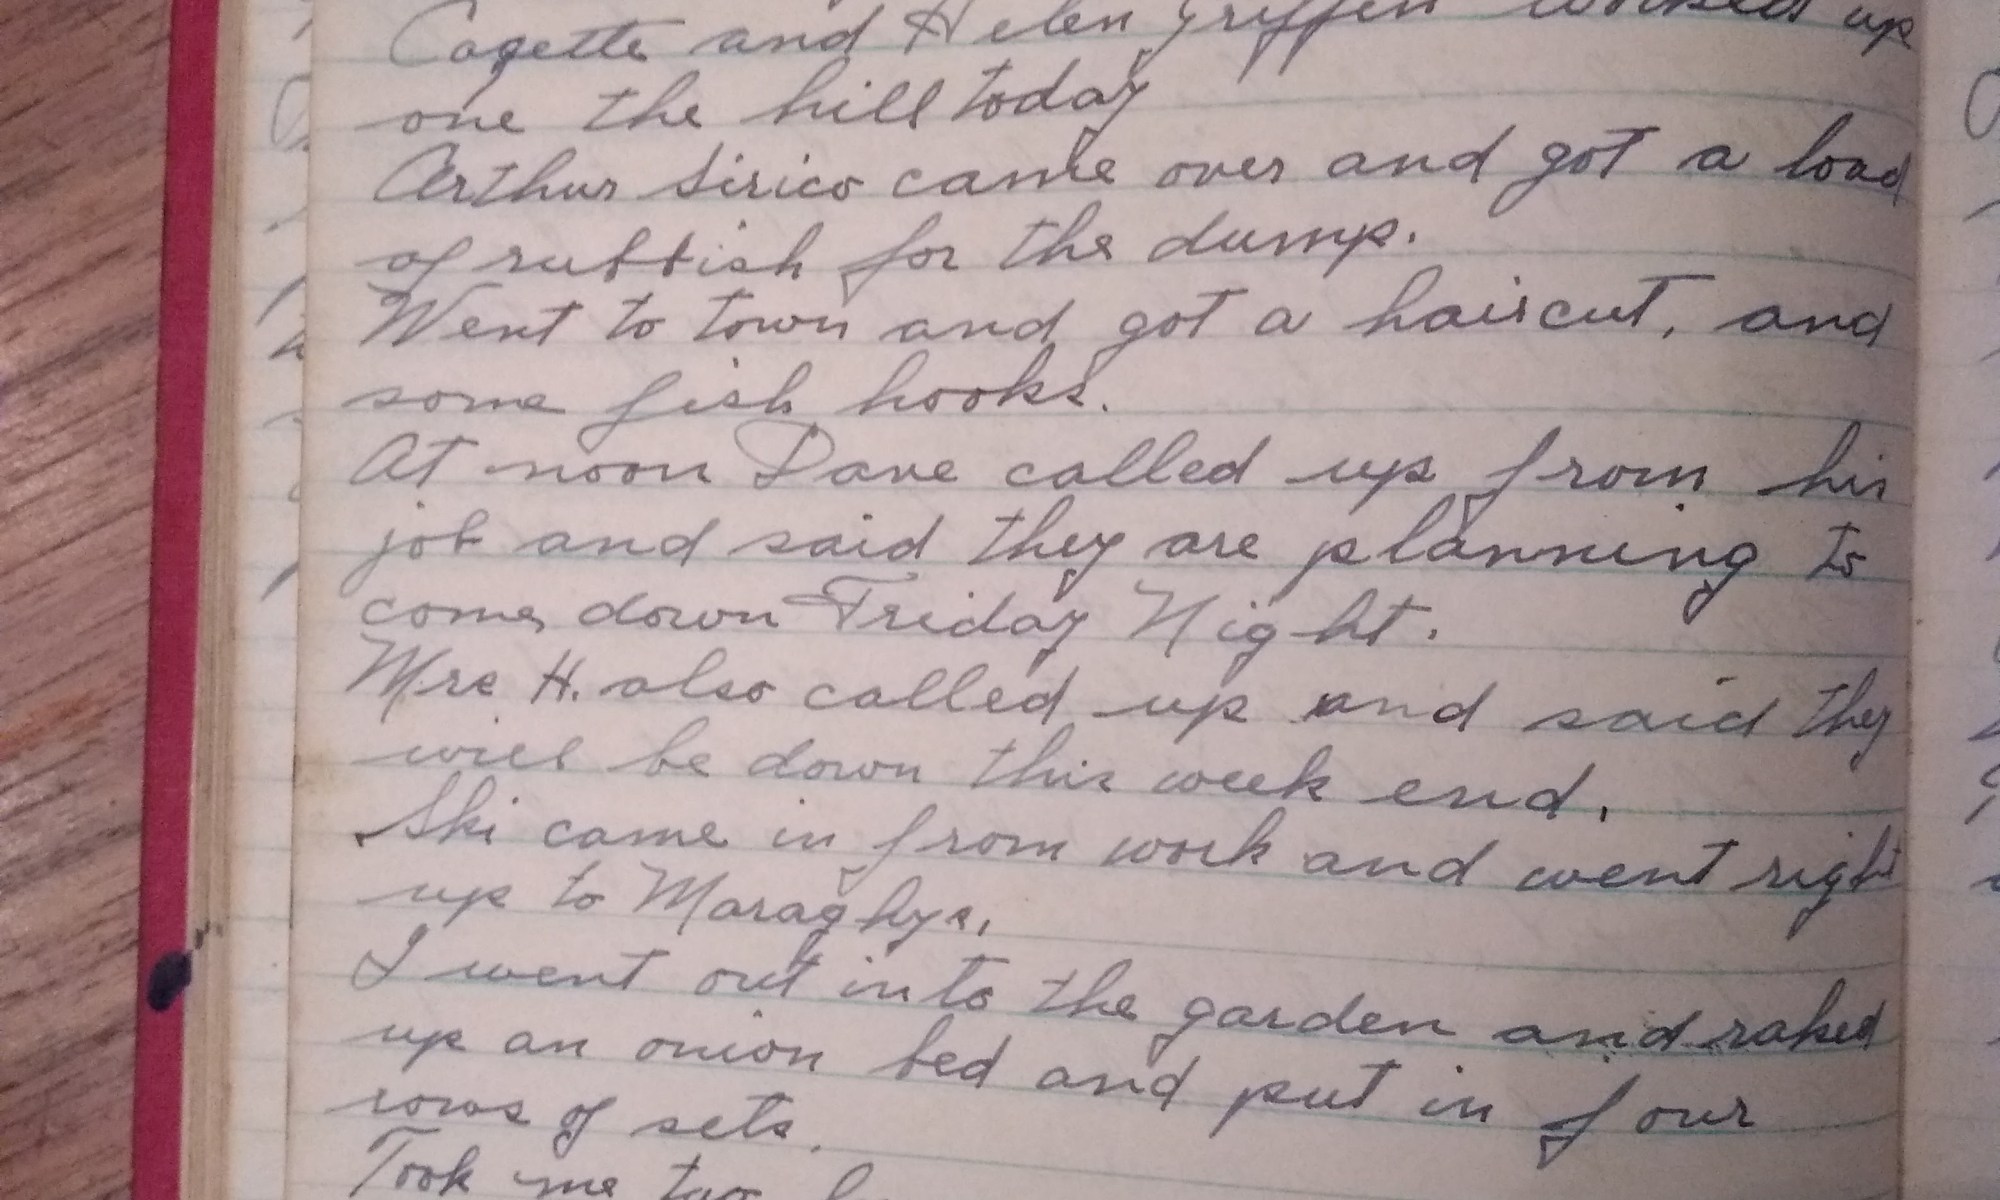 and Helen Griffin worked up
one the hill today
Arthur Sirico came over and got a load
of rubbish for the dump.
Went to town and got a haircut, and
some fish hooks.
At noon Dave called up from his
job and said they are planning to
come down Friday Night.
Mrs H. also called up and said they
will be down this week end.
Ski came in from work and went right
up to Maraghys.
I went out into the garden and raked
up an onion bed and put in four
rows of sets.
Took me two